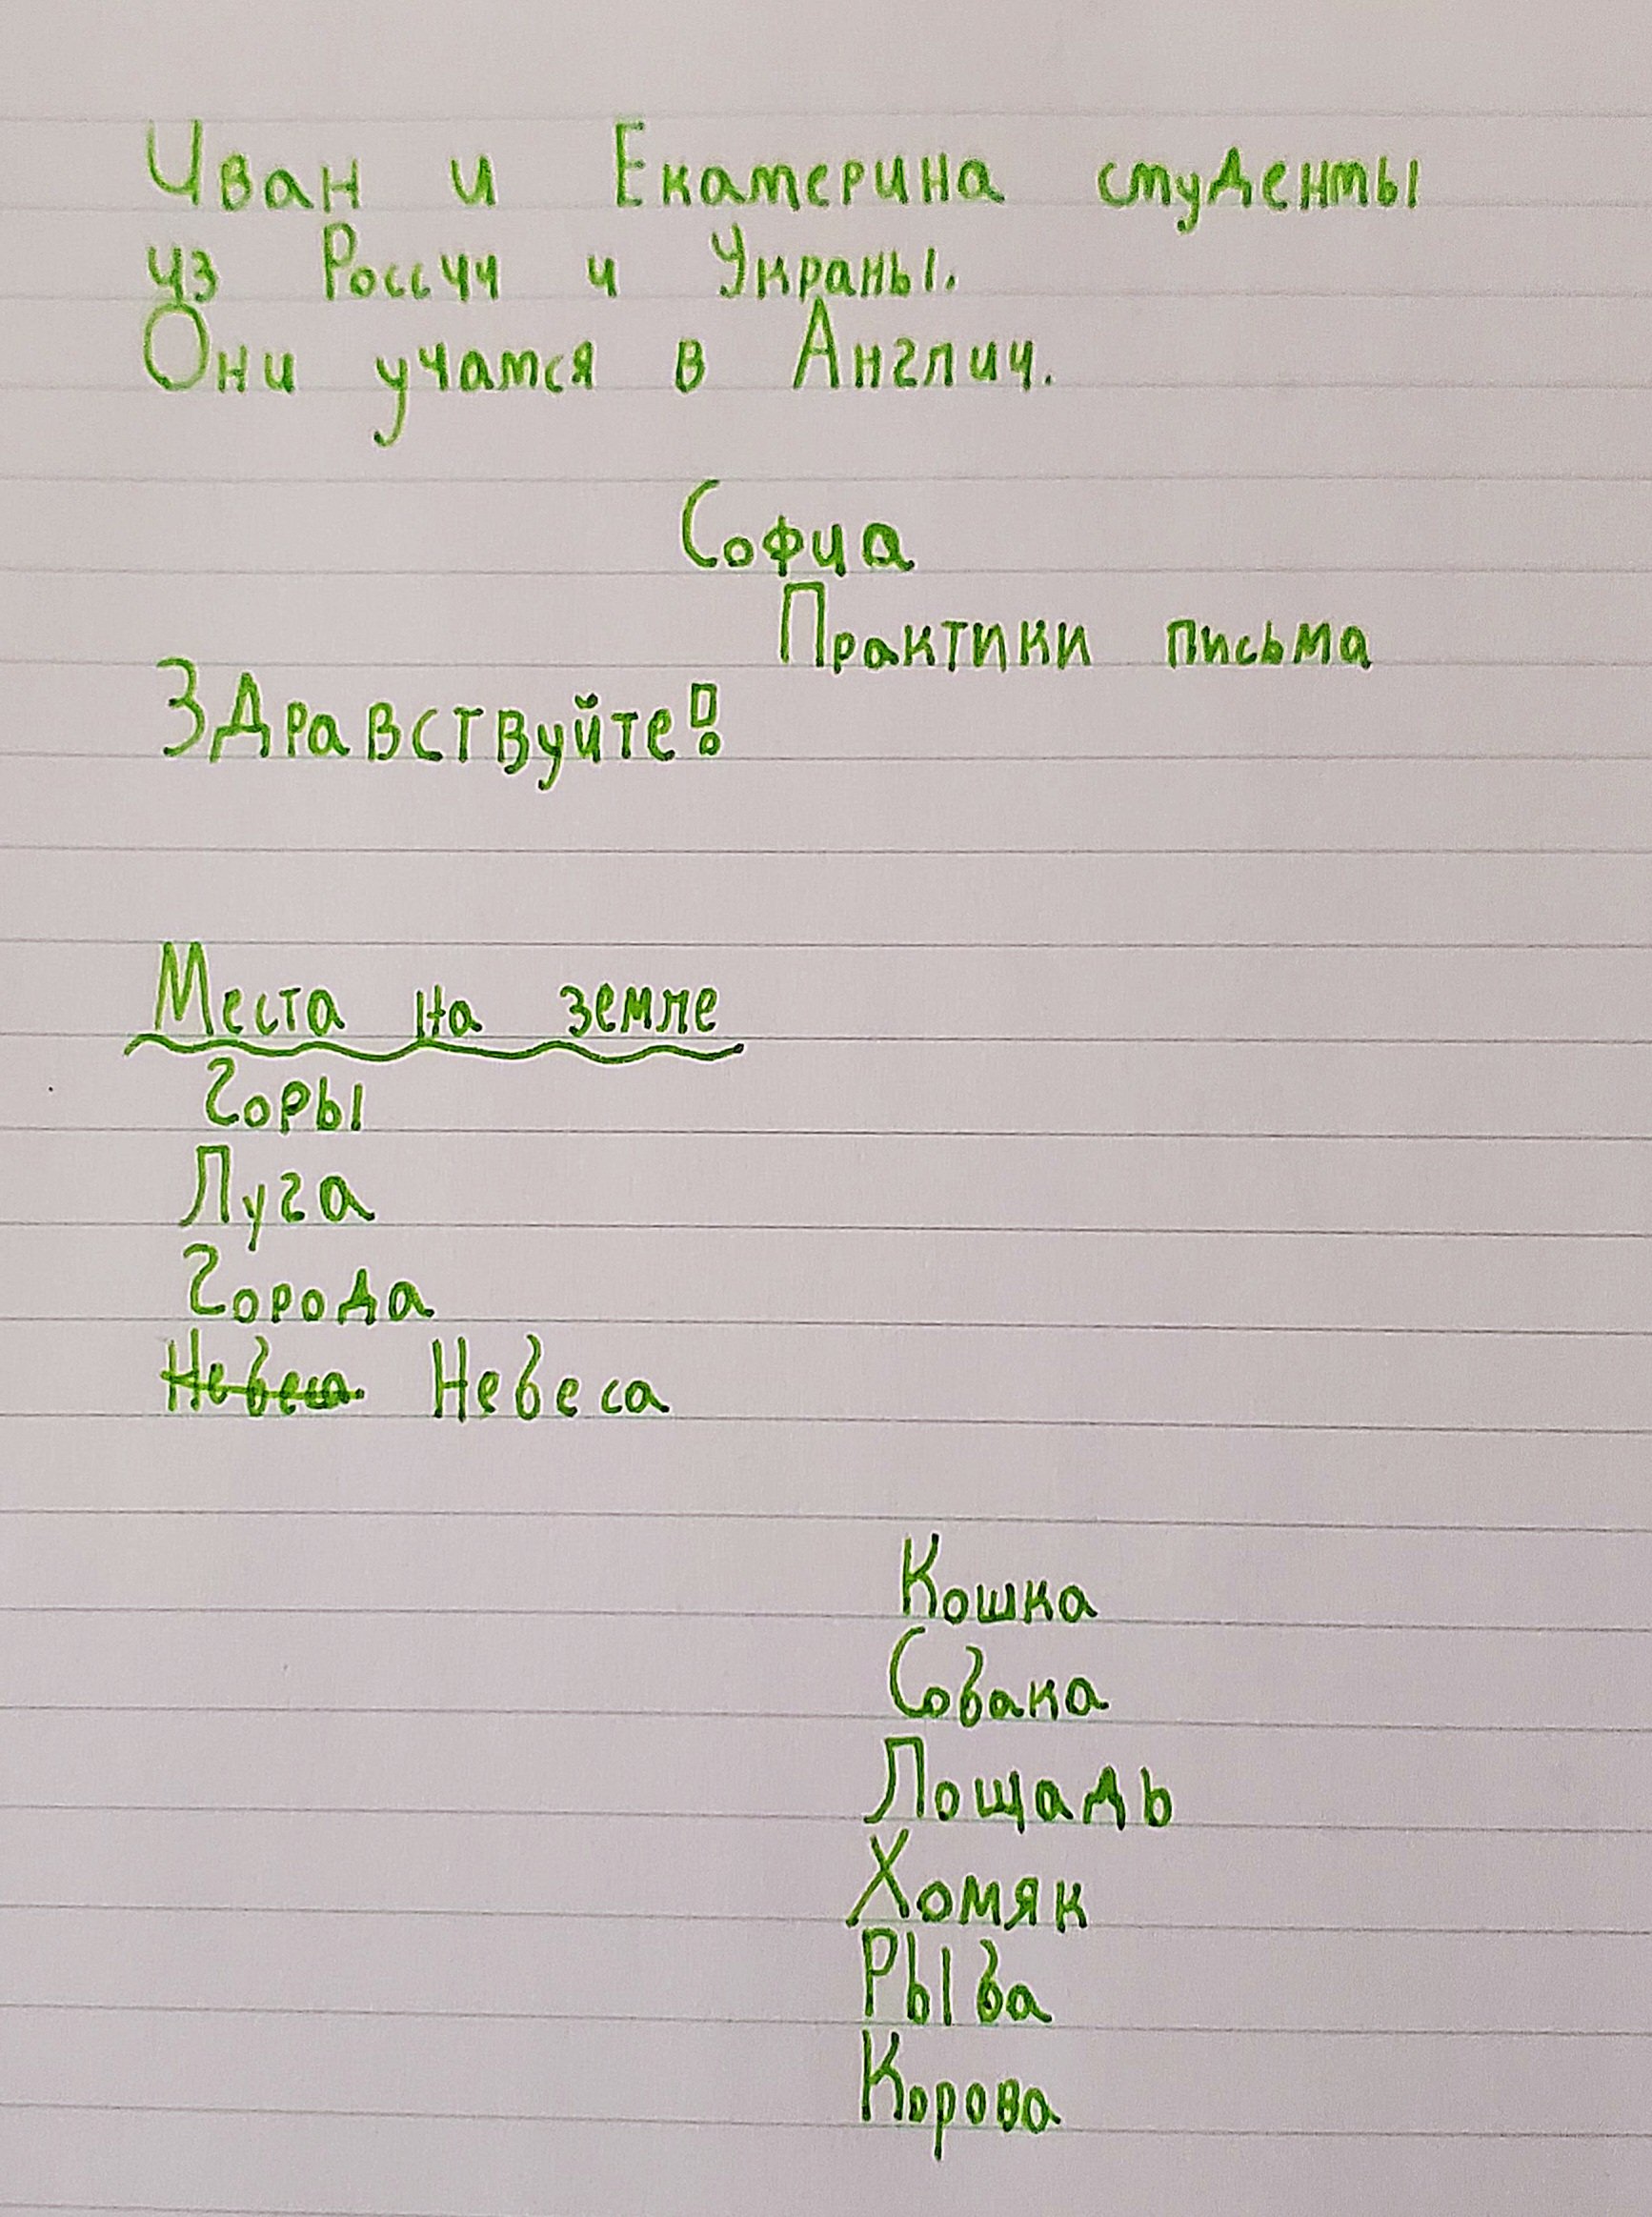 Иван и Екатерина студенты
из России и Украны.
Они учатся в Англии.
Софиа
Практики письма
Здравствуйте!
Места на земле
Горы
Луга
Города
Небеса Небеса
Кошка
Собака
Лощадь
Хомяк
Рыба
Корова